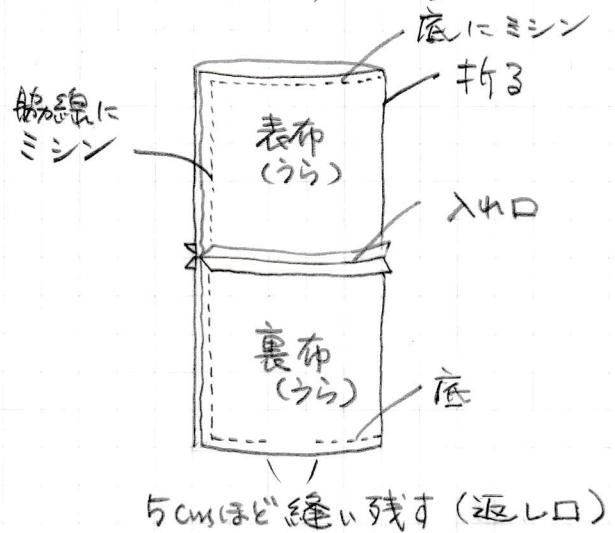 底にミシン
折る
脇線に
ミシン
表布
(うら)
入れ口
裏布
(うら)
底
5cmほど縫い残す(返し口)